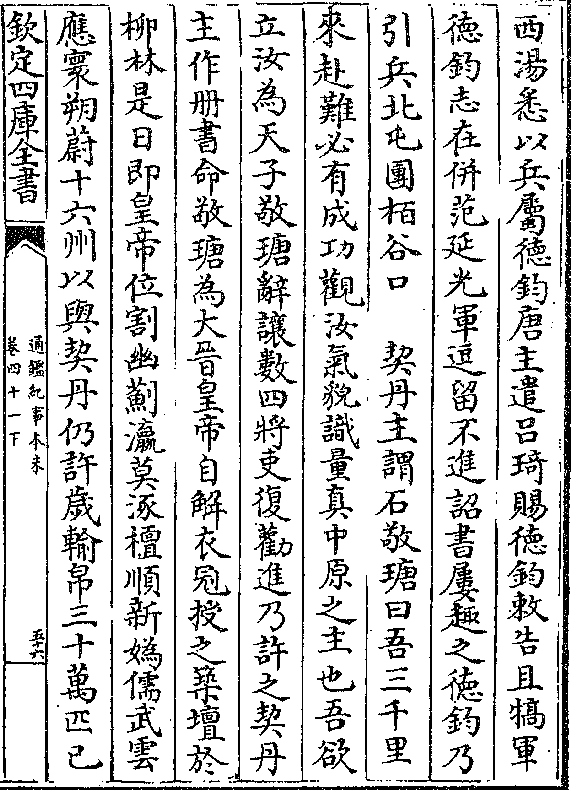 西湯悉以兵屬德鈞唐主遣吕琦賜德鈞敕告且犒軍
德鈞志在併范延光軍逗留不進詔書屢趣之德鈞乃
引兵北屯團栢谷口　契丹主謂石敬瑭曰吾三千里
來赴難必有成功觀汝氣貌識量真中原之主也吾欲
立汝為天子敬瑭辭讓數四將吏復勸進乃許之契丹
主作册書命敬瑭為大晉皇帝自解衣冠授之築壇於
柳林是日即皇帝位割幽薊瀛莫涿檀順新媯儒武雲
應寰朔蔚十六州以與契丹仍許歲輸帛三十萬匹己
欽定四庫全書
通鑑紀事本末
卷四十一下
五十六